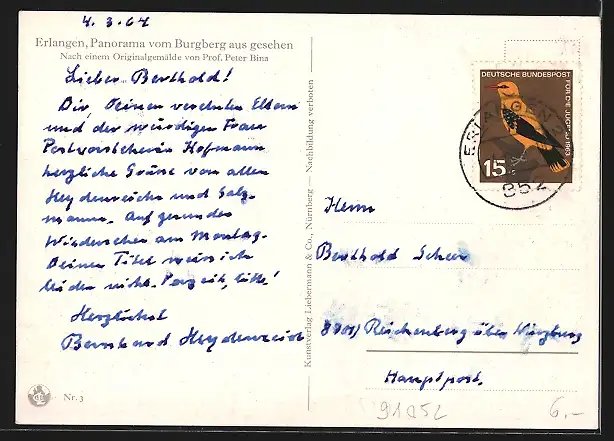 4. 3. 64
Erlangen, Panorama vom Burgberg aus gesehen
Nach einem Originalgemälde von Prof. Peter Bina
Lieber Berthold!
Dir, Deinen verehrten Eltern
und der würdigen Frau
Postvorsteherin Hofmann
herzliche Grüsse von allen
Heydenreichs und Salz-
manns. Auf gesundes
Wiedersehen am Montag.
Deinen Titel weiss ich
leider nicht. Verzeih, bitte!
Herzlichst
Bernhard Heydenreich
Nr. 3
Kunstverlag Liebermann & Co., Nürnberg — Nachbildung verboten
DEUTSCHE BUNDESPOST
FÜR DIE JUGEND 1963
15
ERLANGEN
852
Herrn
Berthold
8701 Reichenberg über Würzburg
Hauptpost.
91852
6,-